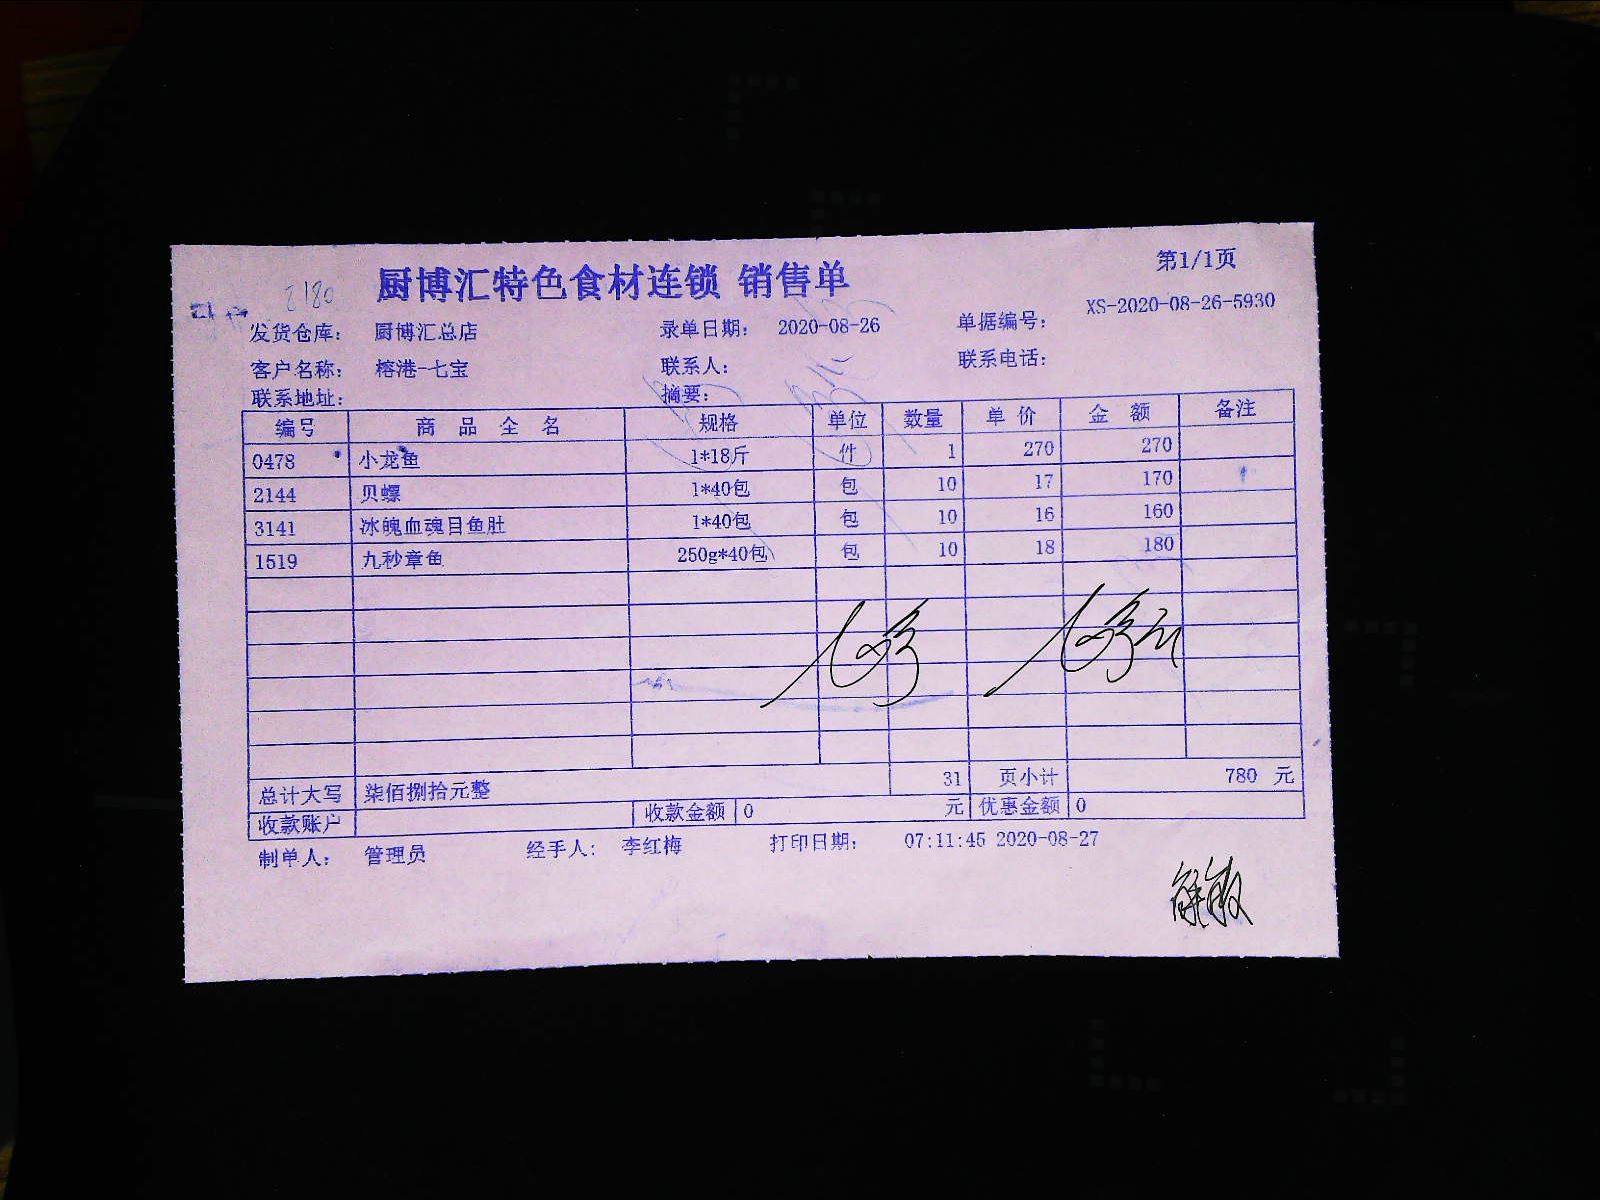 厨博汇特色食材连锁 销售单
第1/1页
2180
发货仓库： 厨博汇总店 录单日期： 2020-08-26 单据编号： XS-2020-08-26-5930
客户名称： 榕港-七宝 联系人： 联系电话：
联系地址： 摘要：
编号 商 品 全 名 规格 单位 数量 单 价 金 额 备注
0478 小龙鱼 1*18斤 件 1 270 270
2144 贝螺 1*40包 包 10 17 170
3141 冰魄血魂目鱼肚 1*40包 包 10 16 160
1519 九秒章鱼 250g*40包 包 10 18 180
总计大写 柒佰捌拾元整 31 页小计 780 元
收款账户 收款金额 0 元 优惠金额 0
制单人： 管理员 经手人： 李红梅 打印日期： 07:11:45 2020-08-27